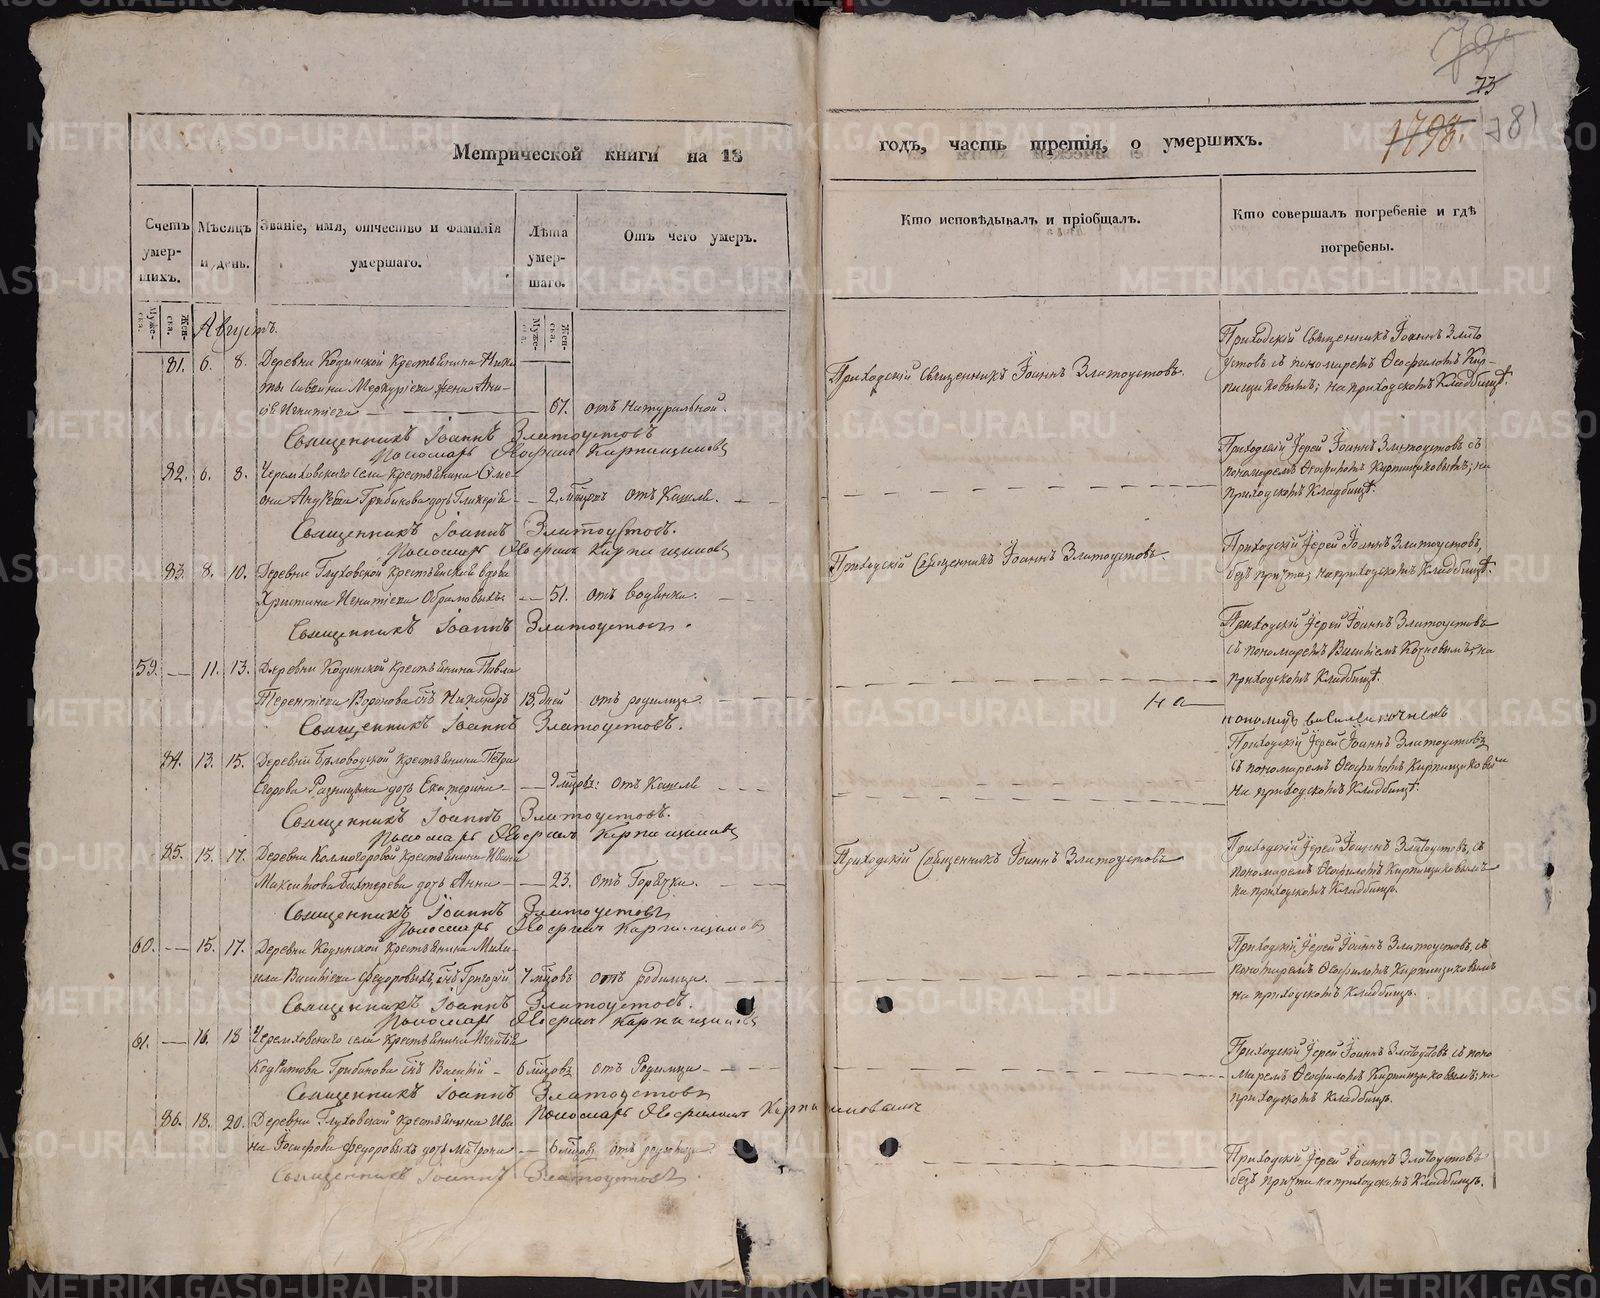 73
1798.
781
Метрической книги на 18
годъ, часть третія, о умершихъ.
Счетъ умер-шихъ.
Мѣсяцъ и день.
Званіе, имя, отчество и фамилія умершаго.
Лѣта умер-шаго.
Отъ чего умеръ.
Кто исповѣдывалъ и пріобщалъ.
Кто совершалъ погребеніе и гдѣ погребены.
Муже-ска.
Жен-ска.
Муже-
Жен-ска.
Августъ.
81. 6. 8. Деревни Кодинской крестьянина Ники-
ты Саввина Меркурьева жена Ани-
сія Игнатіева 67. отъ натуральной.
Приходскій Священникъ Іоаннъ Златоустовъ.
Приходскій Священникъ Іоаннъ Злато
устовъ съ пономаремъ Ѳеофилотъ Кир-
пищиковымъ; на приходскомъ Кладбищѣ.
Священникъ Іоаннъ Златоустовъ
Пономарь Кирпищиковъ
82. 6. 8. Черемховскаго села крестьянина Симе
она Грибанова дочь Гликерія 2 мѣсяцовъ отъ Кашля.
Приходскій Іерей Іоаннъ Златоустовъ съ
пономаремъ Кирпищиковымъ; на
приходскомъ Кладбищѣ.
Священникъ Іоаннъ Златоустовъ.
Пономарь Кирпищиковъ
83. 8. 10. Деревни Глуховской крестьянская вдова
Христина Игнатіева 51. отъ водянки.
Приходскій Священникъ Іоаннъ Златоустовъ.
Приходскій Іерей Іоаннъ Златоустовъ,
безъ причта; на приходскомъ Кладбищѣ.
Священникъ Іоаннъ Златоустовъ.
59. 11. 13. Деревни Кодинской крестьянина Павла
Терентіева Воронова сынъ Никандръ 13. дней отъ родимца
Приходскій Іерей Іоаннъ Златоустовъ
съ пономаремъ на
приходскомъ Кладбищѣ.
Священникъ Іоаннъ Златоустовъ.
на
84. 13. 15. Деревни Бѣловодской крестьянина Петра
Егорова дочь Екатерина 9 мѣсяцовъ: отъ Кашля
Приходскій Іерей Іоаннъ Златоустовъ
съ пономаремъ
на приходскомъ Кладбищѣ.
Священникъ Іоаннъ Златоустовъ.
Пономарь Кирпищиковъ
85. 15. 17. Деревни Колмогоровой крестьянина Ивана
Максимова Бахтерева дочь Анна 23. отъ Горячки.
Приходскій Священникъ Іоаннъ Златоустовъ
Приходскій Іерей Іоаннъ Златоустовъ, съ
пономаремъ Кирпищиковымъ
на приходскомъ Кладбищѣ.
Священникъ Іоаннъ Златоустовъ
Пономарь Кирпищиковъ
60. 15. 17. Деревни Кодинской крестьянина Миха-
ила Васильева Федоровыхъ, сынъ Григорій 7 мѣсяцовъ отъ родимца.
Приходскій Іерей Іоаннъ Златоустовъ, съ
пономаремъ Кирпищиковымъ
на приходскомъ Кладбищѣ.
Священникъ Іоаннъ Златоустовъ.
Пономарь Кирпищиковъ
61. 16. 18 Черемховскаго села крестьянина Игнатія
Кодратова Грибанова сынъ Василій 6 мѣсяцовъ отъ Родимца
Приходскій Іерей Іоаннъ Златоустовъ съ поно
маремъ Кирпищиковымъ; на
приходскомъ Кладбищѣ.
Священникъ Іоаннъ Златоустовъ
86. 18. 20. Деревни Глуховской крестьянина Ива
на Іосифова Федоровыхъ дочь Матрона 6 мѣсяцовъ отъ родимца
Приходскій Іерей Іоаннъ Златоустовъ
безъ причта на приходскомъ Кладбищѣ.
Священникъ Іоаннъ Златоустовъ.
METRIKI.GASO-URAL.RU